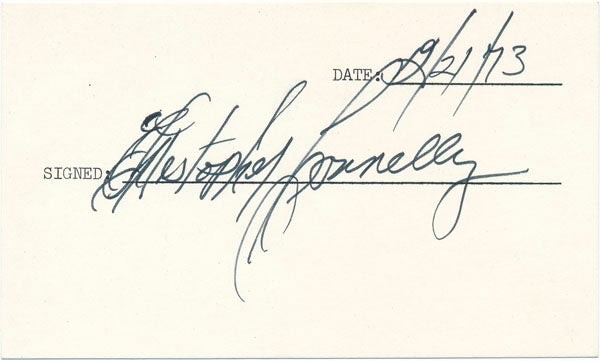 DATE: 9/21/73
SIGNED: Christopher Connelly